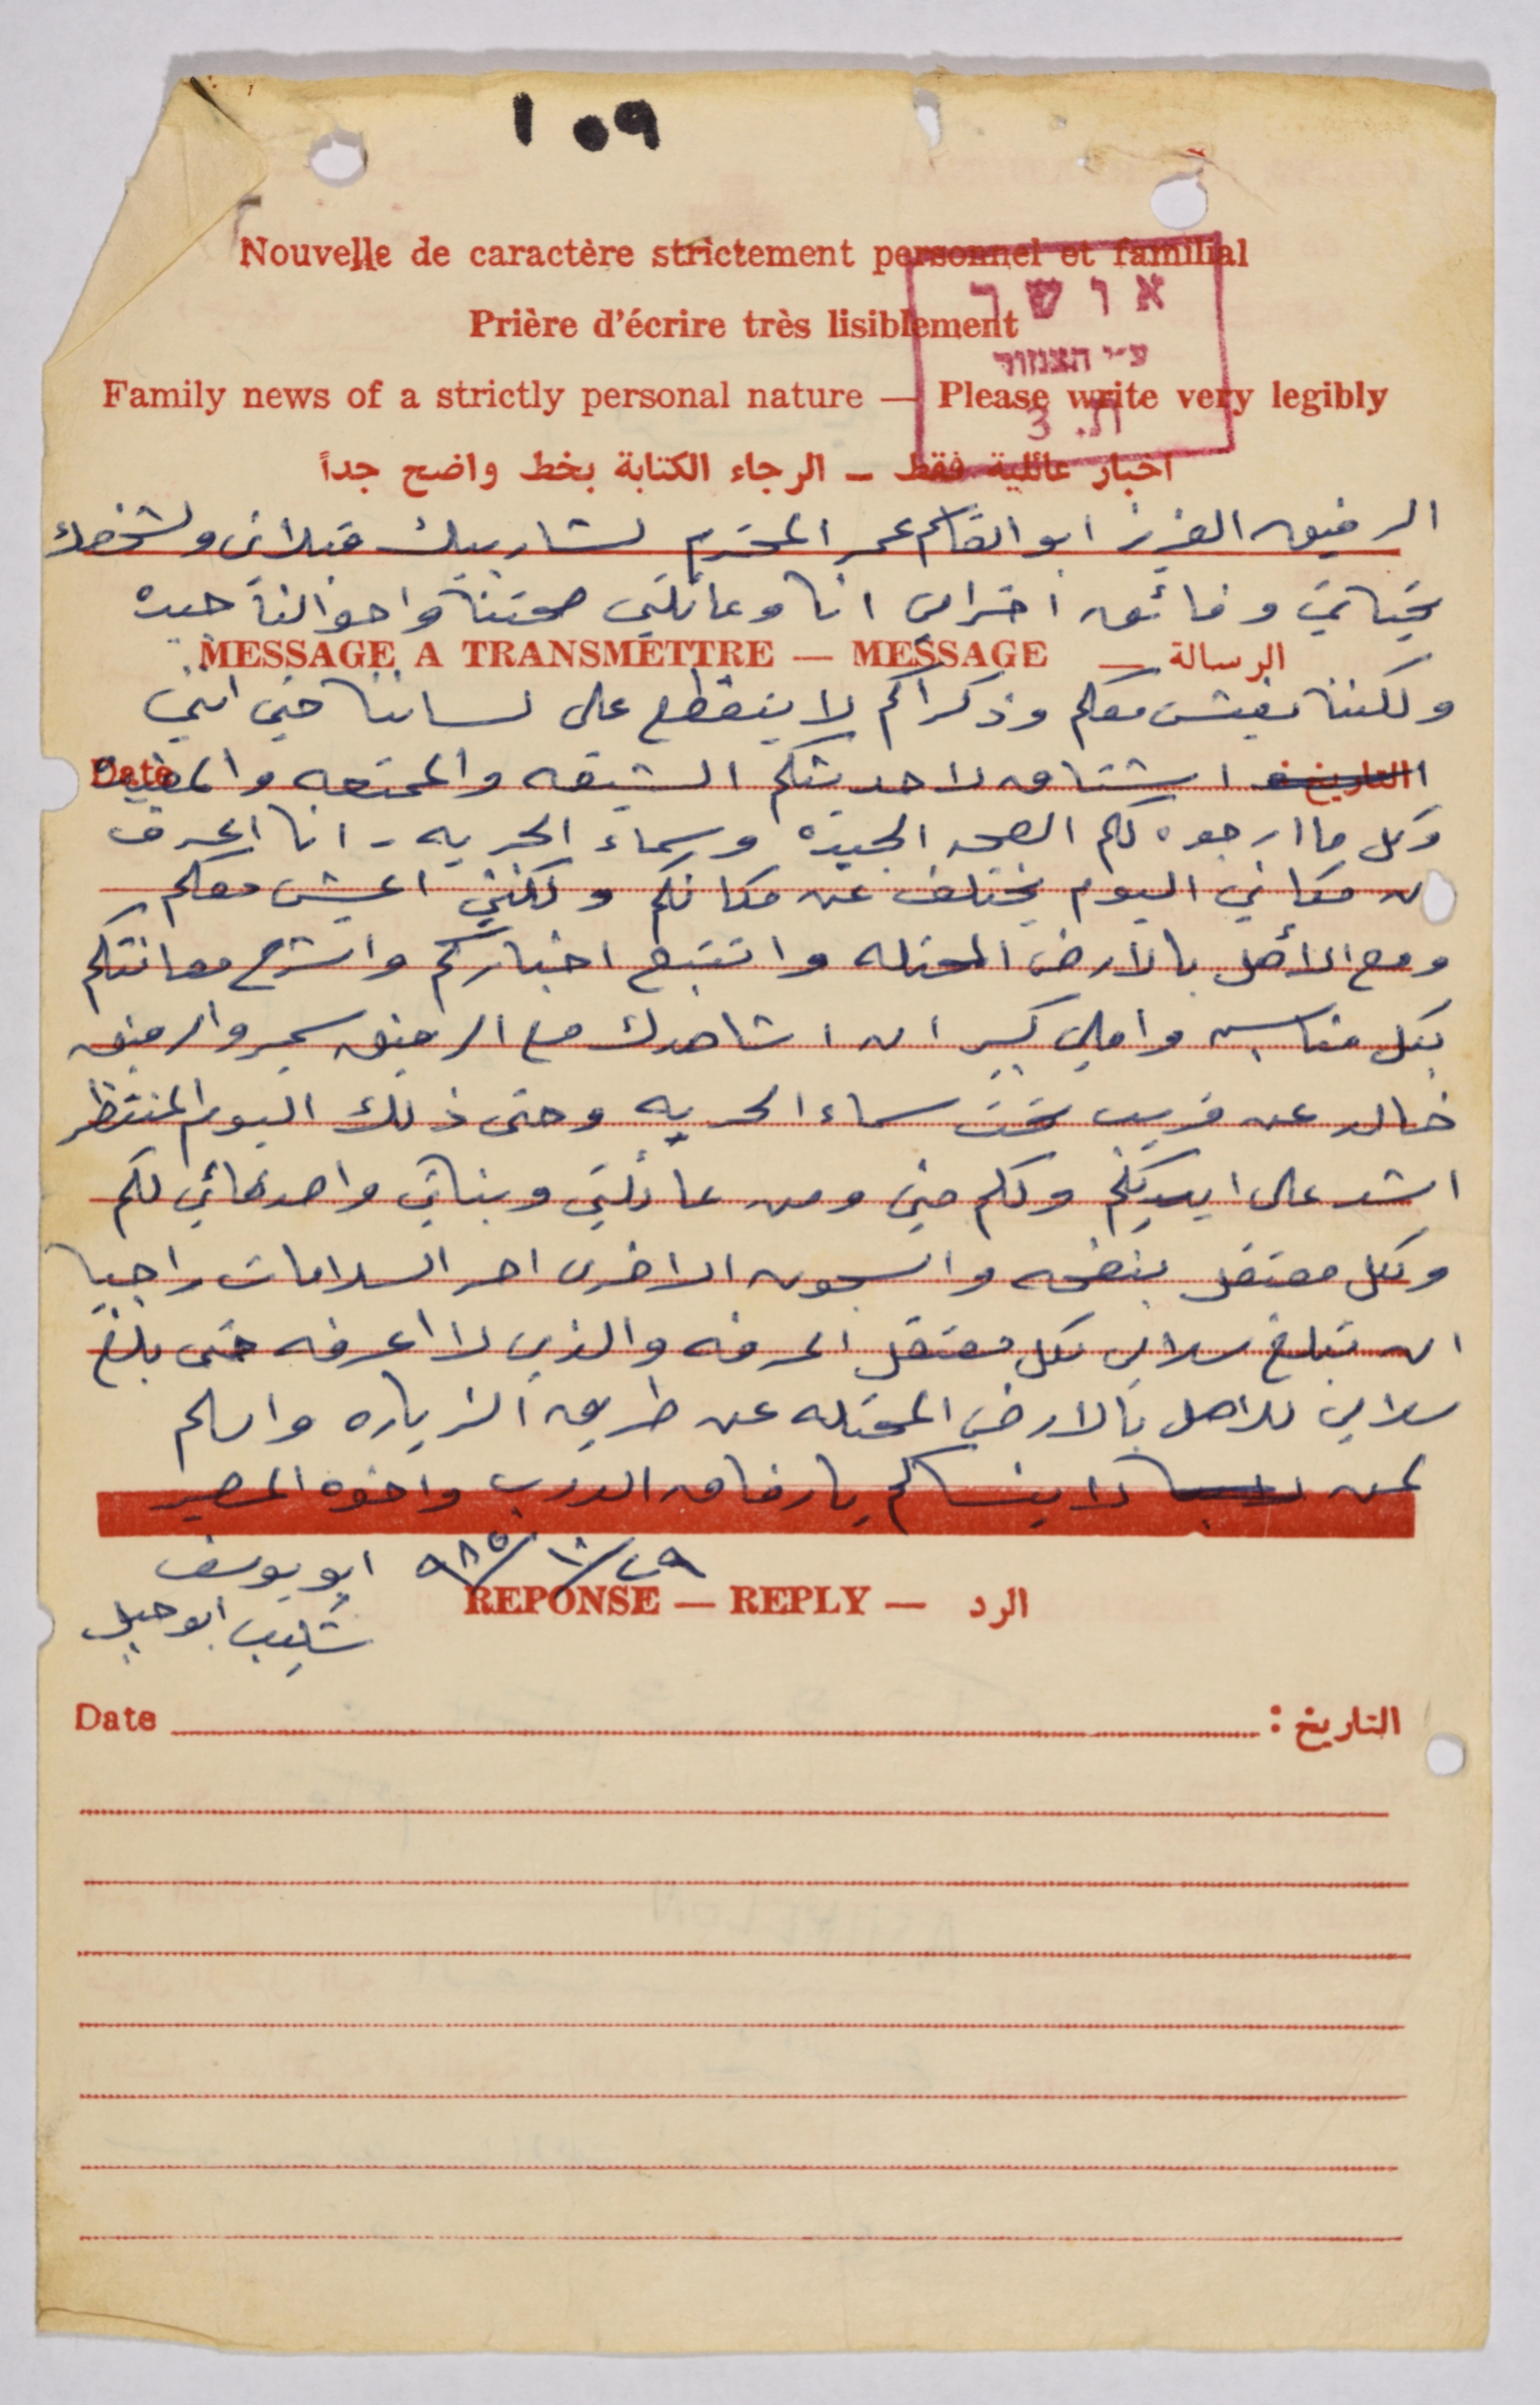 ١٥٩
Nouvelle de caractère strictement personnel et familial
אושר
Prière d'écrire très lisiblement
ע"י הצנזור
Family news of a strictly personal nature — Please write very legibly
ת. 3
اخبار عائلية فقط ــ الرجاء الكتابة بخط واضح جداً
الرفيق العزيز ابو القاسم عمر المحترم لشاربيك قبلاتي ولشخصك
تحياتي وفائق احترامي انا وعائلتي صحتنا واحوالنا جيده
MESSAGE A TRANSMETTRE — MESSAGE — الرسالة
ولكننا نعيش معكم وذكراكم لا ينقطع على لساننا حتى انني
Date التاريخ اشتاق لاحديثكم الشيقه والممتعه والمفيده
وكل ما ارجوه لكم الصحه الجيده وسماء الحريه - انا اعرف
ان مكاني اليوم يختلف عن مكانكم ولكنني اعيش معكم
ومع الأهل بالارض المحتله واتتبع اخباركم واشرح معانتكم
بكل مناسبه واملي كبير ان اشاهدك مع الرفيق سمير والرفيق
خالد عن قريب تحت سماء الحريه وحتى ذلك اليوم المنتظر
اشد على ايديكم ولكم مني ومن عائلتي وبناتي واصدقائي لكم
ولكل معتقل بنفحه والسجون الاخرى احر السلامات راجيا
ان تبلغ سلامي لكل معتقل اعرفه والذي لا اعرفه حتى بلغ
سلامي للاهل بالارض المحتله عن طريق الزياره واسلم
لمن لا ينساكم يا رفاق الدرب واخوة المصير
ابو يوسف ٢٩/١٠/٩٨٥
REPONSE — REPLY — الرد
شكيب ابو جبل
Date التاريخ :